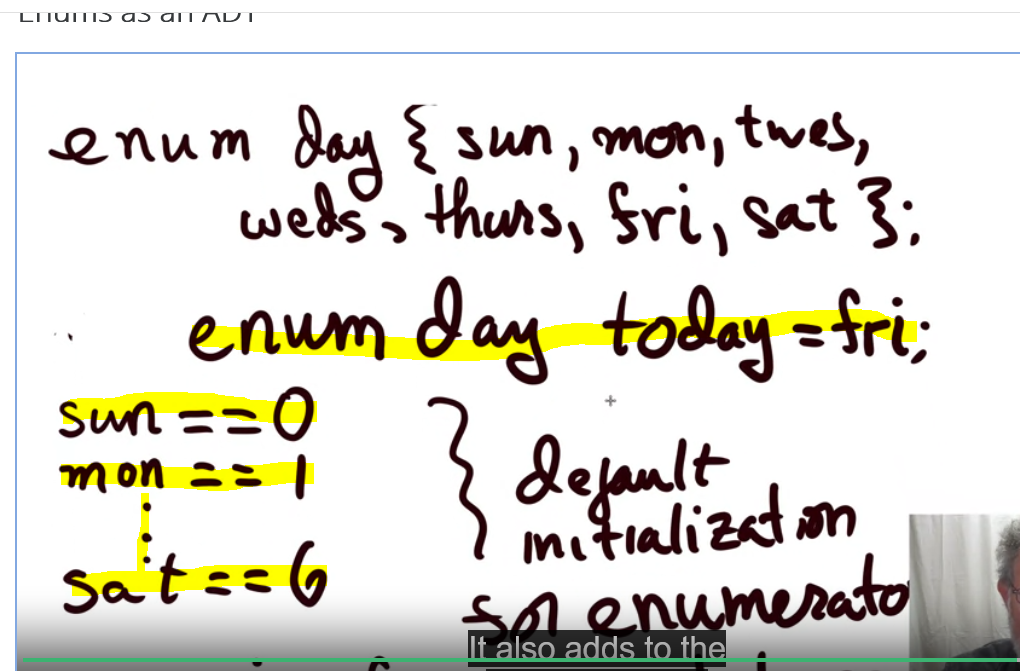 Enums as an ADT
enum day { sun, mon, twes,
weds, thurs, fri, sat };
enum day today = fri;
sun == 0
mon == 1
sat == 6
} default
initialization
for enumerato
It also adds to the